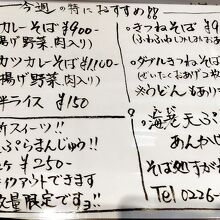 今週の特におすすめ!!
カレーそば¥900
揚げ野菜.肉入り)
カツカレー¥1100
揚げ野菜.肉入り)
半ライス ¥150
スイーツ!!
ぷらまんじゅう!!
¥250-
テイクアウトできます
数量限定ですョ!!
・きつねそば¥9
(ふわふわしみしみ
・ダブルきつねそば
(ぜいたくおあげ
※うどんもあり
・海老天ぷ
あんか
そば処すが
Tel 0226